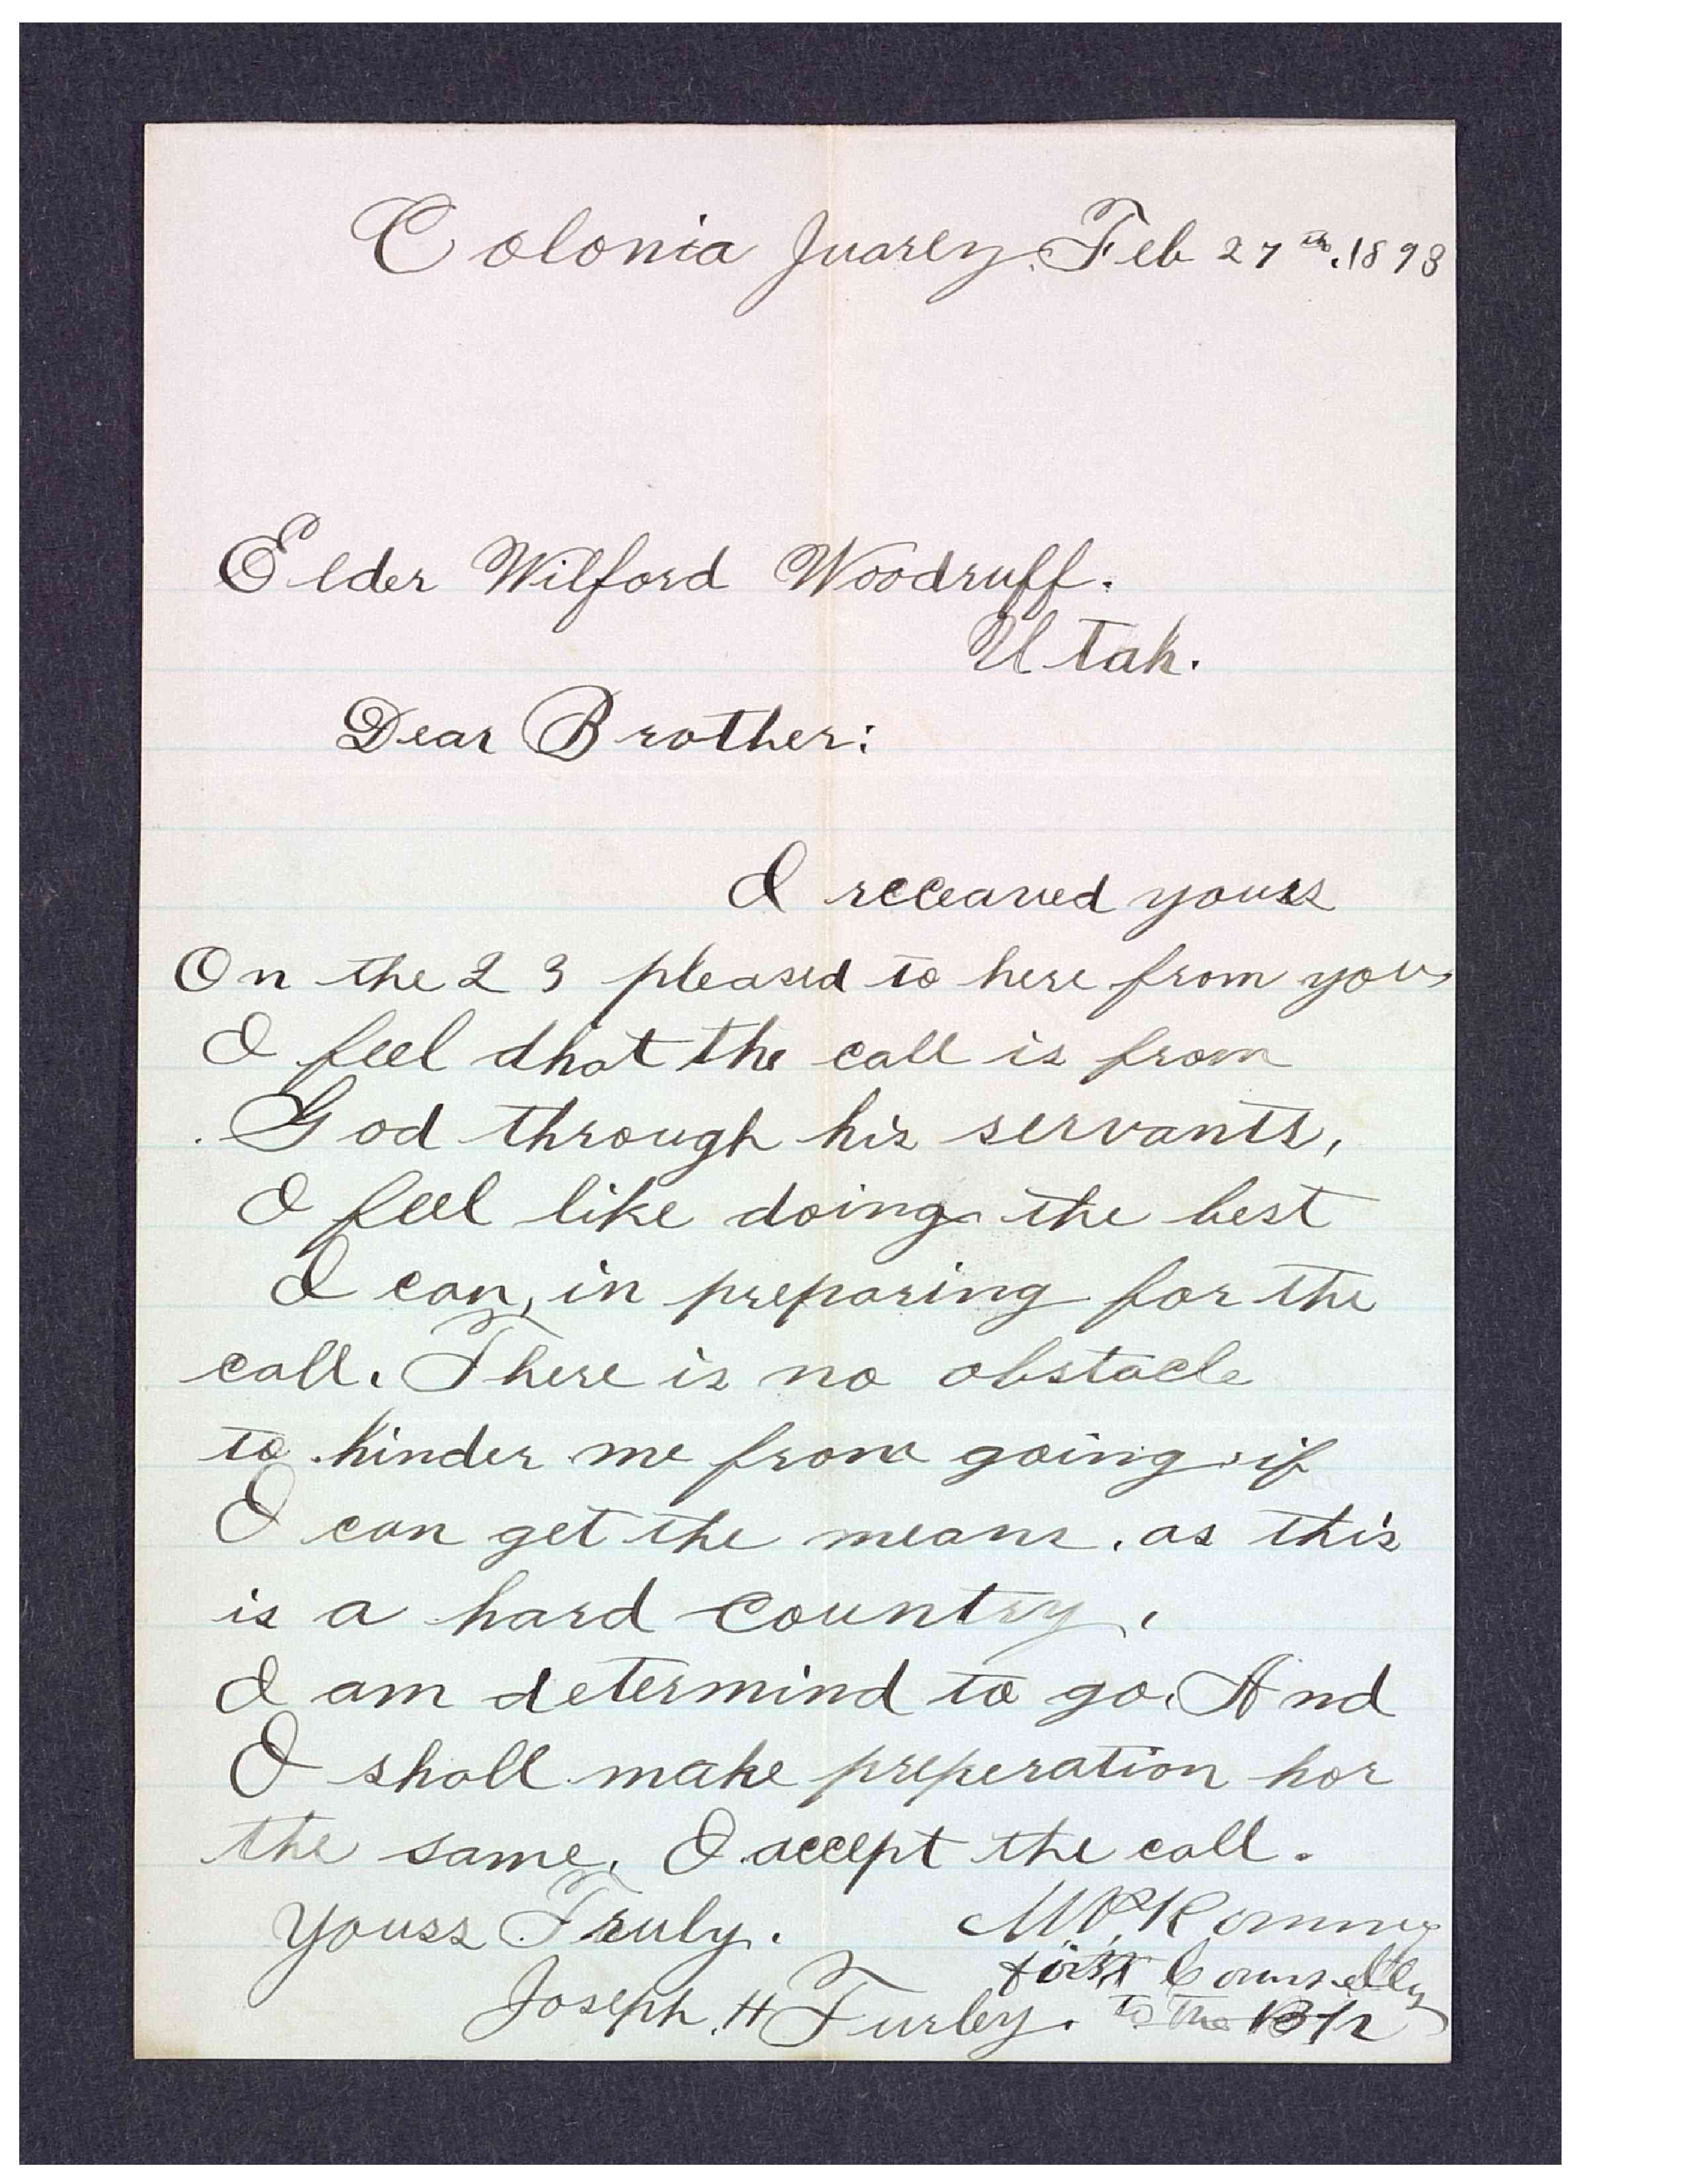 Colonia Juarez. Feb 27th. 1893
Elder Wilford Woodruff.
Utah.
Dear Brother:
I receaved yours
On the 23 pleased to here from you
I feel dhat the call is from
God through his servants,
I feel like doing the best
I can, in preparing for the
call. There is no obstacle
to hinder me from going if
I can get the means. as this
is a hard country.
I am determind to go. And
I shall make preperation hor
the same. I accept the call.
Yours Truly.
Joseph. H Turley.
M P Romney
first
to the Bp